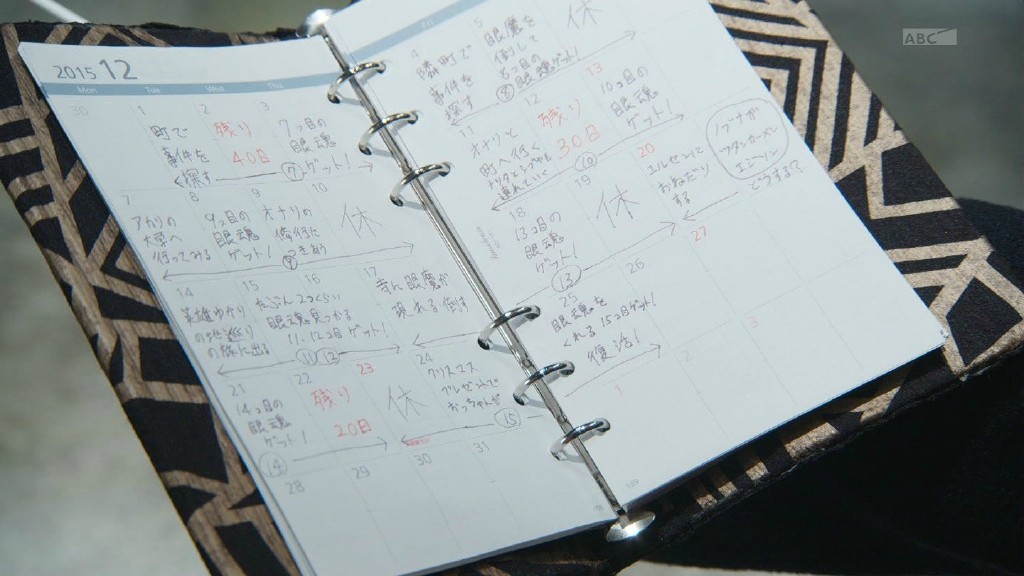 ABC
2015 12
Mon
Tue
Wed
Thu
Fri
30
1
町で
事件を
探す
2
残り
40日
3
7つ目の
眼魂
ゲット!
⑦
4
隣町で
事件を
探す
5
眼魔を
倒して
8コ目の
眼魂ゲット!
⑧
休
7
アカリの
大学へ
行ってみる
8
9つ目の
眼魂
ゲット!
⑨
9
オナリの
修行に
つきあう
10
休
11
オナリと
町へ行く
12
残り
30日
13
10コ目の
眼魂
ゲット!
⑩
14
英雄ゆかり
の地巡り
の旅に出る
15
たぶん2つくらい
眼魂見つかる
16
11、12コ目ゲット!
⑪
⑫
17
寺に眼魔が
現れる倒す
18
13コ目の
眼魂
ゲット!
⑬
19
休
20
どうする?
21
14コ目の
眼魂
ゲット!
⑭
22
残り
20日
23
休
24
クリスマス
プレゼントで
おっちゃんが
⑮
25
眼魂を
くれる15コ目ゲット!
復活!
26
27
28
29
30
31
1
2
3